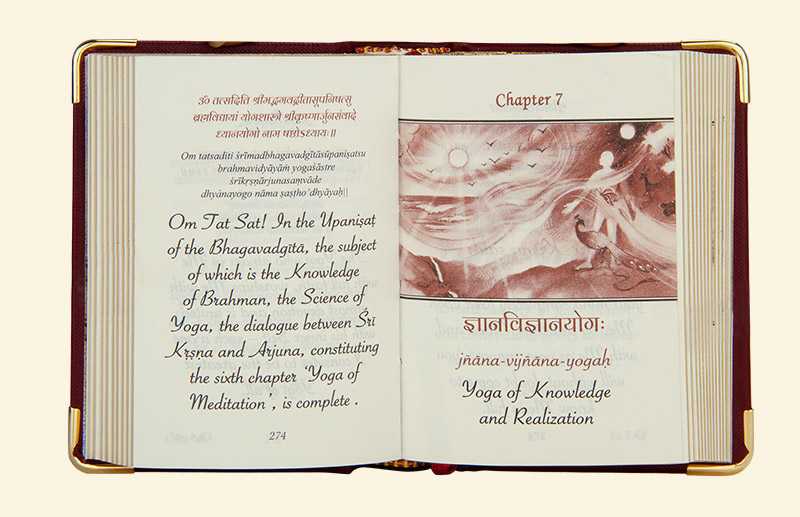 ॐ तत्सदिति श्रीमद्भगवद्गीतासूपनिषत्सु
ब्रह्मविद्यायां योगशास्त्रे श्रीकृष्णार्जुनसंवादे
ध्यानयोगो नाम षष्ठोऽध्यायः॥
Om tatsaditi śrīmadbhagavadgītāsūpaniṣatsu
brahmavidyāyāṁ yogaśāstre
śrīkṛṣṇārjunasaṁvāde
dhyānayogo nāma ṣaṣṭho'dhyāyaḥ||
Om Tat Sat! In the Upaniṣaṭ
of the Bhagavadgītā, the subject
of which is the Knowledge
of Brahman, the Science of
Yoga, the dialogue between Śrī
Kṛṣṇa and Arjuna, constituting
the sixth chapter ‘Yoga of
Meditation’, is complete .
274
Chapter 7
ज्ञानविज्ञानयोगः
jñāna-vijñāna-yogaḥ
Yoga of Knowledge
and Realization